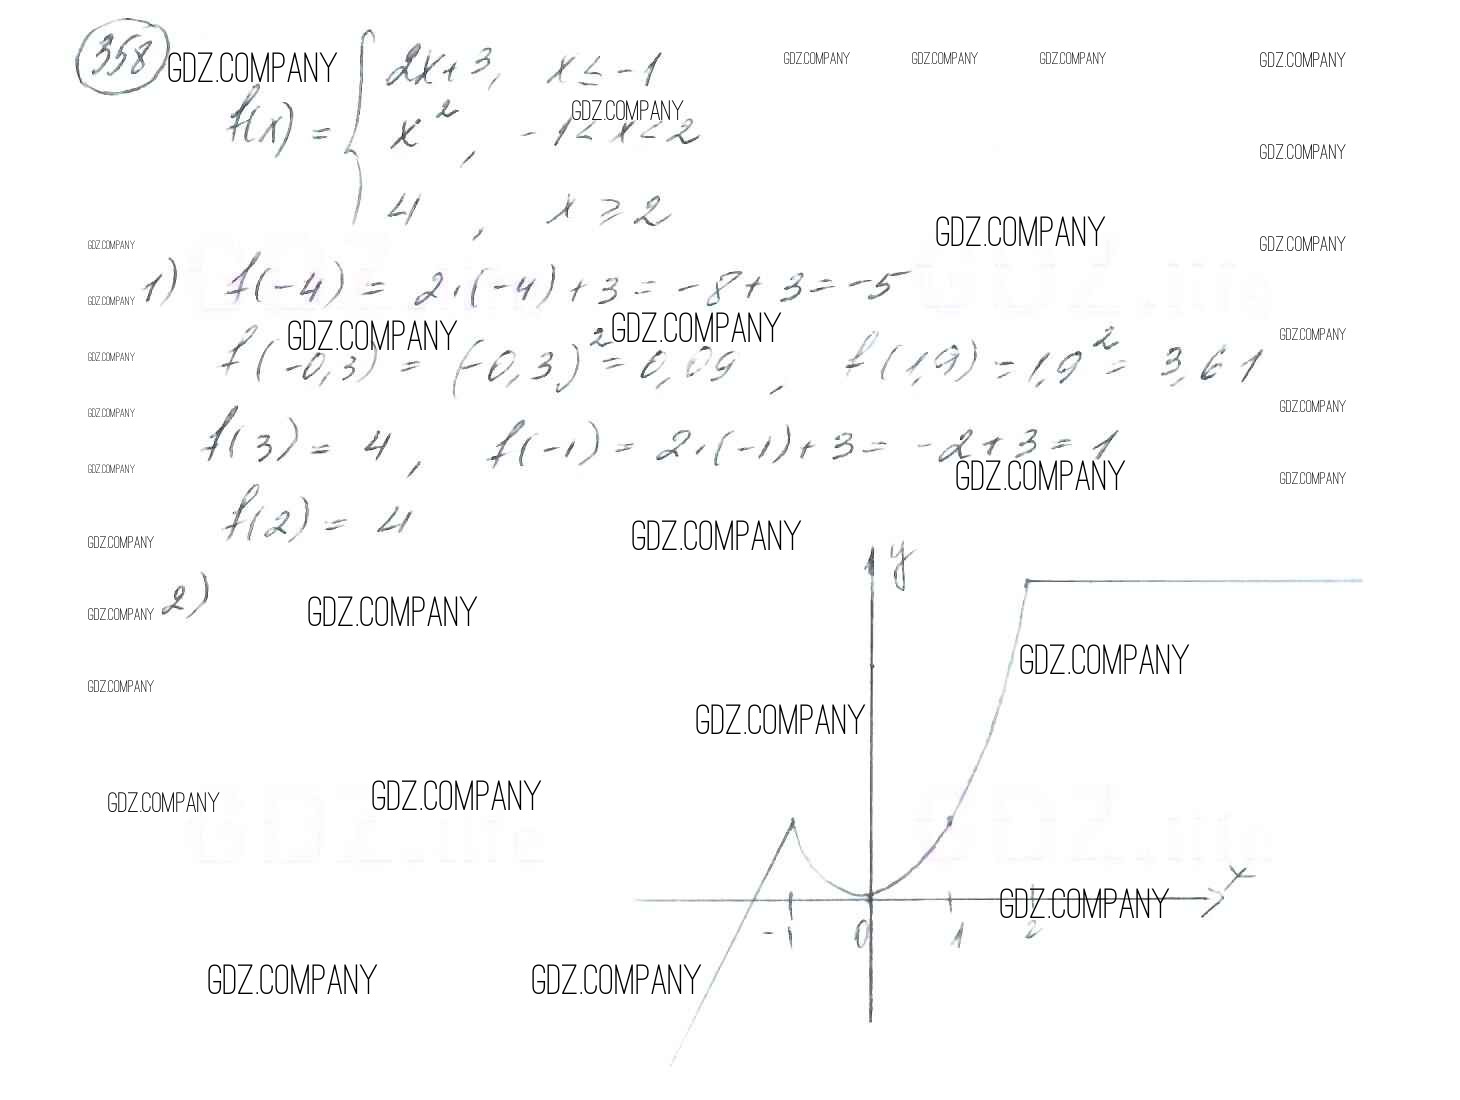 358 GDZ.COMPANY 2x+3, x ≤ -1 GDZ.COMPANY GDZ.COMPANY GDZ.COMPANY GDZ.COMPANY
f(x) = { x², -1 < x < 2 GDZ.COMPANY GDZ.COMPANY
4, x ≥ 2 GDZ.COMPANY GDZ.COMPANY
GDZ.COMPANY
GDZ.COMPANY 1) f(-4) = 2·(-4)+3 = -8+3 = -5
GDZ.COMPANY GDZ.COMPANY GDZ.COMPANY
GDZ.COMPANY f(-0,3) = (-0,3)² = 0,09, f(1,9) = 1,9² = 3,61
GDZ.COMPANY GDZ.COMPANY
f(3) = 4, f(-1) = 2·(-1)+3 = -2+3 = 1
GDZ.COMPANY GDZ.COMPANY GDZ.COMPANY
f(2) = 4
GDZ.COMPANY GDZ.COMPANY
y
GDZ.COMPANY 2) GDZ.COMPANY
GDZ.COMPANY
GDZ.COMPANY
GDZ.COMPANY
GDZ.COMPANY GDZ.COMPANY
GDZ.life GDZ.life
x
GDZ.COMPANY
-1 0 1 2
GDZ.COMPANY GDZ.COMPANY